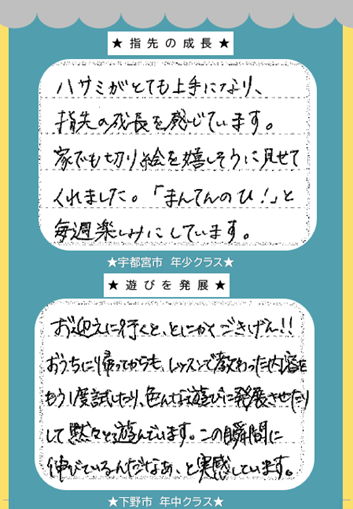 ★ 指先の成長 ★
ハサミがとても上手になり、
指先の成長を感じています。
家でも切り絵を嬉しそうに見せて
くれました。「まんてんのひ！」と
毎週楽しみにしています。
★宇都宮市 年少クラス★
★ 遊びを発展 ★
お迎えに行くと、とにかくごきげん!!
おうちに帰ってからも、レッスンで教わった内容を
もう1度試したり、色んな遊びに発展させたり
して黙々と遊んでいます。この瞬間に
伸びているんだなあ、と実感しています。
★下野市 年中クラス★